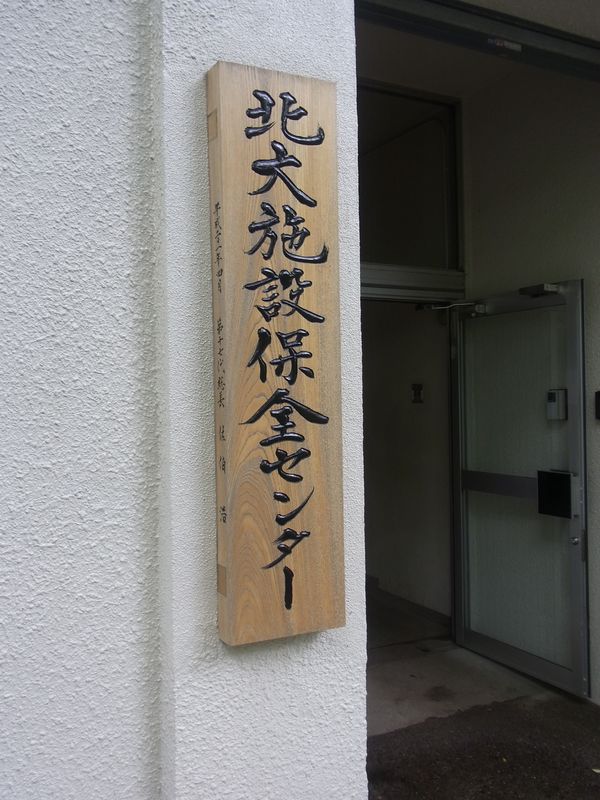 北大施設保全センター
平成二十一年四月 第十七代総長 佐伯 浩